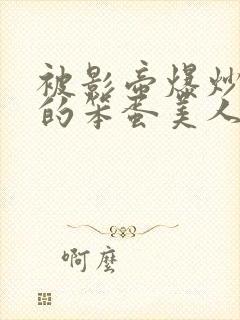 被影帝爆炒
的笨蛋美人
啊麽